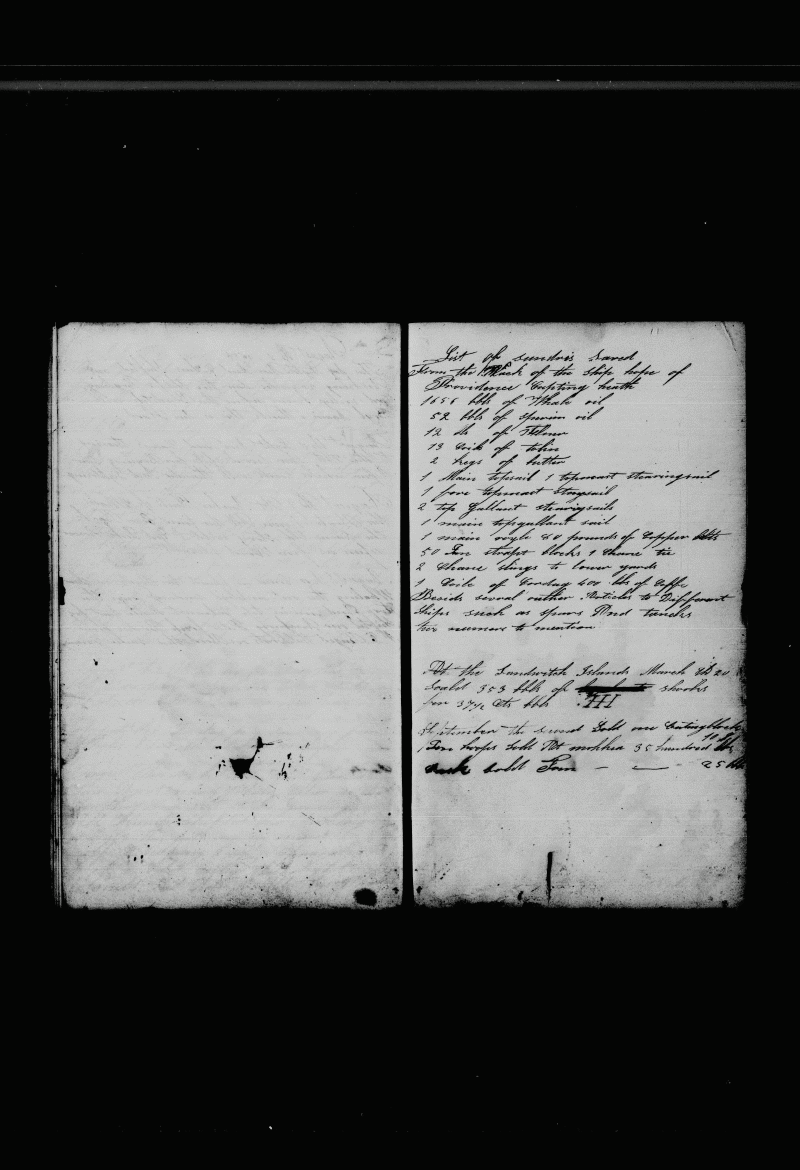 List of sundris saved
From the Wrack of the Ship hope of
Providence Capting heath
1656 bbls of Whale oil
52 bbls of sperim oil
12 do of
13 Coils of
2 kegs of butter
1 Main topsail 1 topmast stearingsail
1 fore topmast staysail
2 top Gallant stearigsails
1 main topgallant sail
1 main 80 pounds of Copper
50 Iron strapt blocks 1 Chane tie
2 Chane slings to lower yards
1 Coile of Cordag 400 lbs of
Besids sevral outher Articles to Differant
Ships such as spars And
too numers to mention
At the Sandwitch Islands March 20
Soald 353 bbls of shooks
for 37½ Cts bbls
September the second Sold one Cuting block
Iron hoops Sold At 35 hundred lbs
sold 25